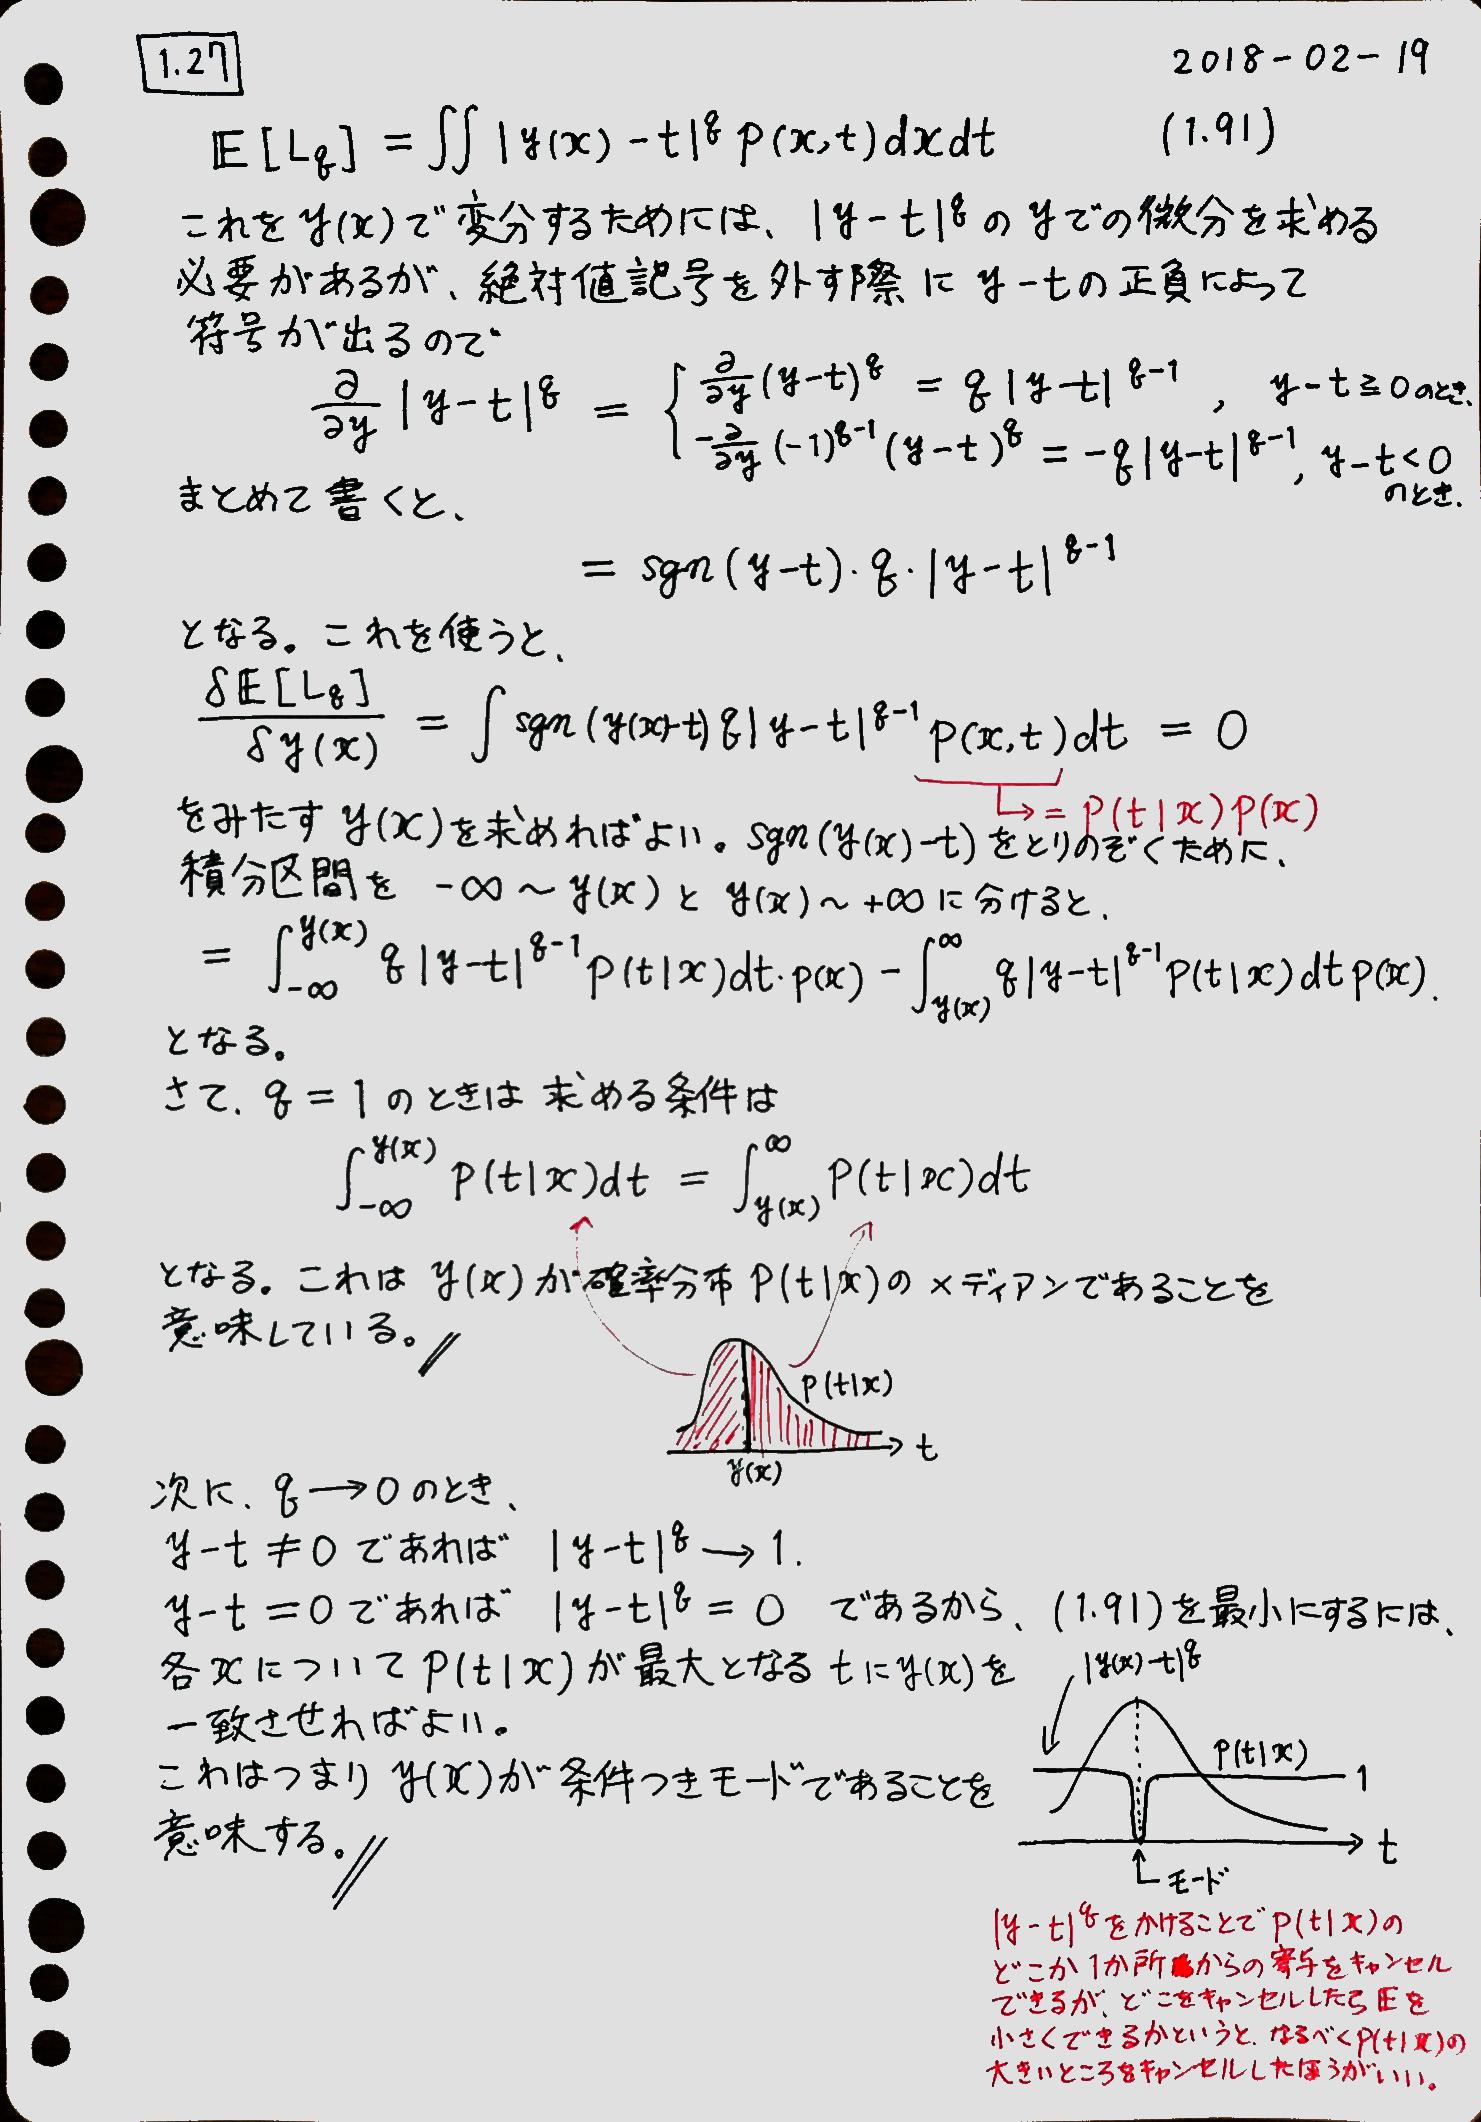 1.27
2018-02-19
𝔼[L_q] = ∬ |y(x) - t|^q p(x,t)dxdt (1.91)
これをy(x)で変分するためには、|y-t|^qのyでの微分を求める
必要があるが、絶対値記号を外す際にy-tの正負によって
符号が出るので
∂/∂y |y-t|^q = { ∂/∂y (y-t)^q = q|y-t|^{q-1}, y-t≧0のとき.
-∂/∂y (-1)^{q-1}(y-t)^q = -q|y-t|^{q-1}, y-t<0のとき.
まとめて書くと、
= sgn(y-t)・q・|y-t|^{q-1}
となる。これを使うと、
δ𝔼[L_q]/δy(x) = ∫ sgn(y(x)-t) q|y-t|^{q-1} p(x,t)dt = 0
↳ = p(t|x)p(x)
をみたすy(x)を求めればよい。sgn(y(x)-t)をとりのぞくために、
積分区間を -∞～y(x) と y(x)～+∞に分けると、
= ∫_{-∞}^{y(x)} q|y-t|^{q-1} p(t|x)dt・p(x) - ∫_{y(x)}^{∞} q|y-t|^{q-1} p(t|x)dt p(x).
となる。
さて、q=1のときは求める条件は
∫_{-∞}^{y(x)} p(t|x)dt = ∫_{y(x)}^{∞} p(t|x)dt
となる。これはy(x)が確率分布p(t|x)のメディアンであることを
意味している。//
p(t|x)
t
y(x)
次に、q→0のとき、
y-t≠0であれば |y-t|^q → 1.
y-t=0であれば |y-t|^q = 0 であるから、(1.91)を最小にするには、
各xについてp(t|x)が最大となるtにy(x)を
一致させればよい。
これはつまりy(x)が条件つきモードであることを
意味する。//
|y(x)-t|^q
p(t|x)
1
t
モード
|y-t|^qをかけることでp(t|x)の
どこか1か所からの寄与をキャンセル
できるが、どこをキャンセルしたら𝔼を
小さくできるかというと、なるべくp(t|x)の
大きいところをキャンセルしたほうがいい。